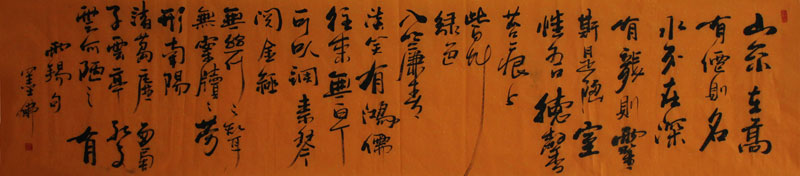 山不在高
有僊則名
水不在深
有龍則靈
斯是陋室
惟吾德馨
苔痕上
綠色
入簾青
談笑有鴻儒
往來無白丁
可以調素琴
閱金經
無絲竹之亂耳
無案牘之勞
形南陽
諸葛廬西蜀
子雲亭孔子
雲何陋之有
禹錫句
墨佛